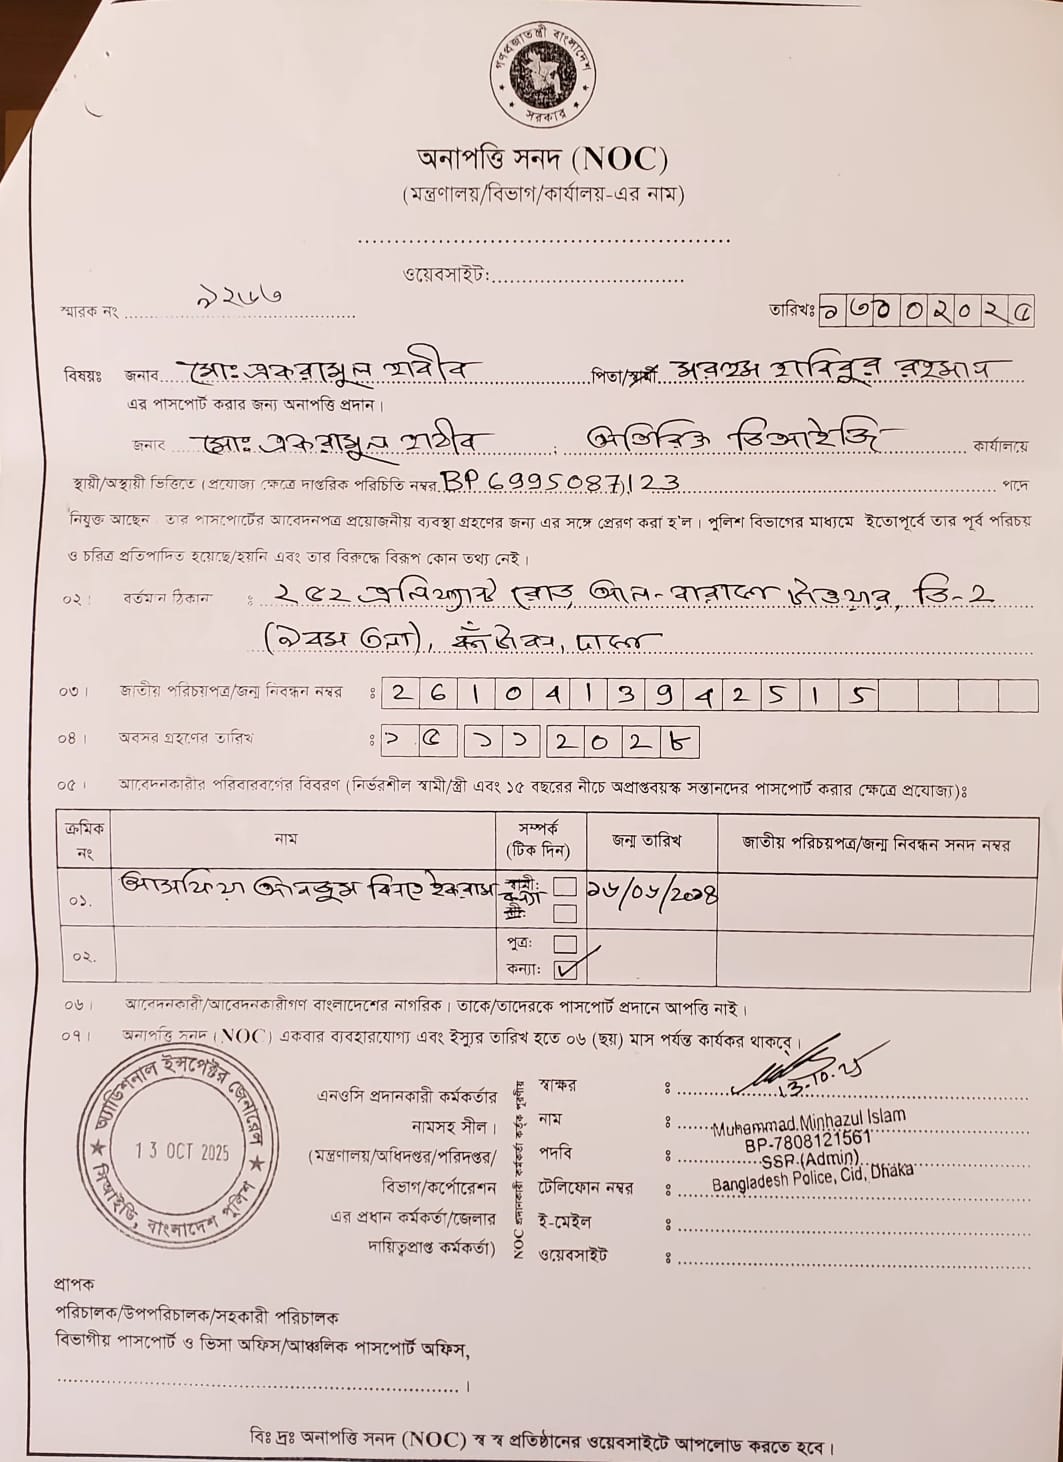 গণপ্রজাতন্ত্রী বাংলাদেশ
সরকার
অনাপত্তি সনদ (NOC)
(মন্ত্রণালয়/বিভাগ/কার্যালয়-এর নাম)
ওয়েবসাইট:
স্মারক নং
তারিখঃ
বিষয়ঃ জনাব মোঃ একরামুল হাবীব পিতা/স্বামী মরহুম হাবিবুর রহমান
এর পাসপোর্ট করার জন্য অনাপত্তি প্রদান।
জনাব মোঃ একরামুল হাবীব অতিরিক্ত ডিআইজি কার্যালয়ে
স্থায়ী/অস্থায়ী ভিত্তিতে (প্রযোজ্য ক্ষেত্রে দাপ্তরিক পরিচিতি নম্বর BP 6995087123 পদে
নিযুক্ত আছেন তার পাসপোর্টের আবেদনপত্র প্রয়োজনীয় ব্যবস্থা গ্রহণের জন্য এর সঙ্গে প্রেরণ করা হ'ল। পুলিশ বিভাগের মাধ্যমে ইতোপূর্বে তার পূর্ব পরিচয়
ও চরিত্র প্রতিপাদিত হয়েছে/হয়নি এবং তার বিরুদ্ধে বিরূপ কোন তথ্য নেই।
০২। বর্তমান ঠিকানা : ২৫২ এলিফ্যান্ট রোড, টাওয়ার, ডি-2
(৯বম তলা), ঢাকা
০৩। জাতীয় পরিচয়পত্র/জন্ম নিবন্ধন নম্বর : 2610413942515
০৪। অবসর গ্রহণের তারিখ : ১৫ ১১ 202৮
০৫। আবেদনকারীর পরিবারবর্গের বিবরণ (নির্ভরশীল স্বামী/স্ত্রী এবং ১৫ বছরের নীচে অপ্রাপ্তবয়স্ক সন্তানদের পাসপোর্ট করার ক্ষেত্রে প্রযোজ্য)ঃ
ক্রমিক নং নাম সম্পর্ক (টিক দিন) জন্ম তারিখ জাতীয় পরিচয়পত্র/জন্ম নিবন্ধন সনদ নম্বর
০১. বিনতে ইকরাম স্বামী: কন্যা
স্ত্রী:
০২. পুত্র:
কন্যা: ✓
০৬। আবেদনকারী/আবেদনকারীগণ বাংলাদেশের নাগরিক। তাকে/তাদেরকে পাসপোর্ট প্রদানে আপত্তি নাই।
০৭। অনাপত্তি সনদ (NOC) একবার ব্যবহারযোগ্য এবং ইস্যুর তারিখ হতে ০৬ (ছয়) মাস পর্যন্ত কার্যকর থাকবে।
অ্যাডিশনাল ইন্সপেক্টর জেনারেল
13 OCT 2025
সিআইডি, বাংলাদেশ পুলিশ
এনওসি প্রদানকারী কর্মকর্তার
নামসহ সীল।
(মন্ত্রণালয়/অধিদপ্তর/পরিদপ্তর/
বিভাগ/কর্পোরেশন
এর প্রধান কর্মকর্তা/জেলার
দায়িত্বপ্রাপ্ত কর্মকর্তা)
NOC প্রদানকারী কর্মকর্তা কর্তৃক পূরণীয়
স্বাক্ষর : 13.10.25
নাম : Muhammad Minhazul Islam
BP-7808121561
পদবি : SSP (Admin)
টেলিফোন নম্বর : Bangladesh Police, Cid, Dhaka
ই-মেইল :
ওয়েবসাইট :
প্রাপক
পরিচালক/উপপরিচালক/সহকারী পরিচালক
বিভাগীয় পাসপোর্ট ও ভিসা অফিস/আঞ্চলিক পাসপোর্ট অফিস,
বিঃ দ্রঃ অনাপত্তি সনদ (NOC) স্ব স্ব প্রতিষ্ঠানের ওয়েবসাইটে আপলোড করতে হবে।